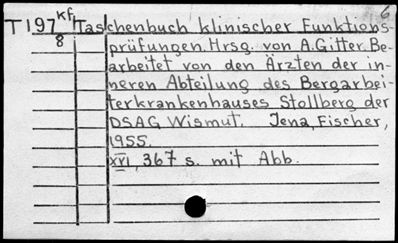 6
T197 kf Taschenbuch klinischer Funktions-
8 prüfungen. Hrsg. von A. Gitter. Be-
arbeitet von den Ärzten der in-
neren Abteilung des Bergarbei-
terkrankenhauses Stollberg der
DSAG Wismut. Jena, Fischer,
1955.
XVI, 367 s. mit Abb.